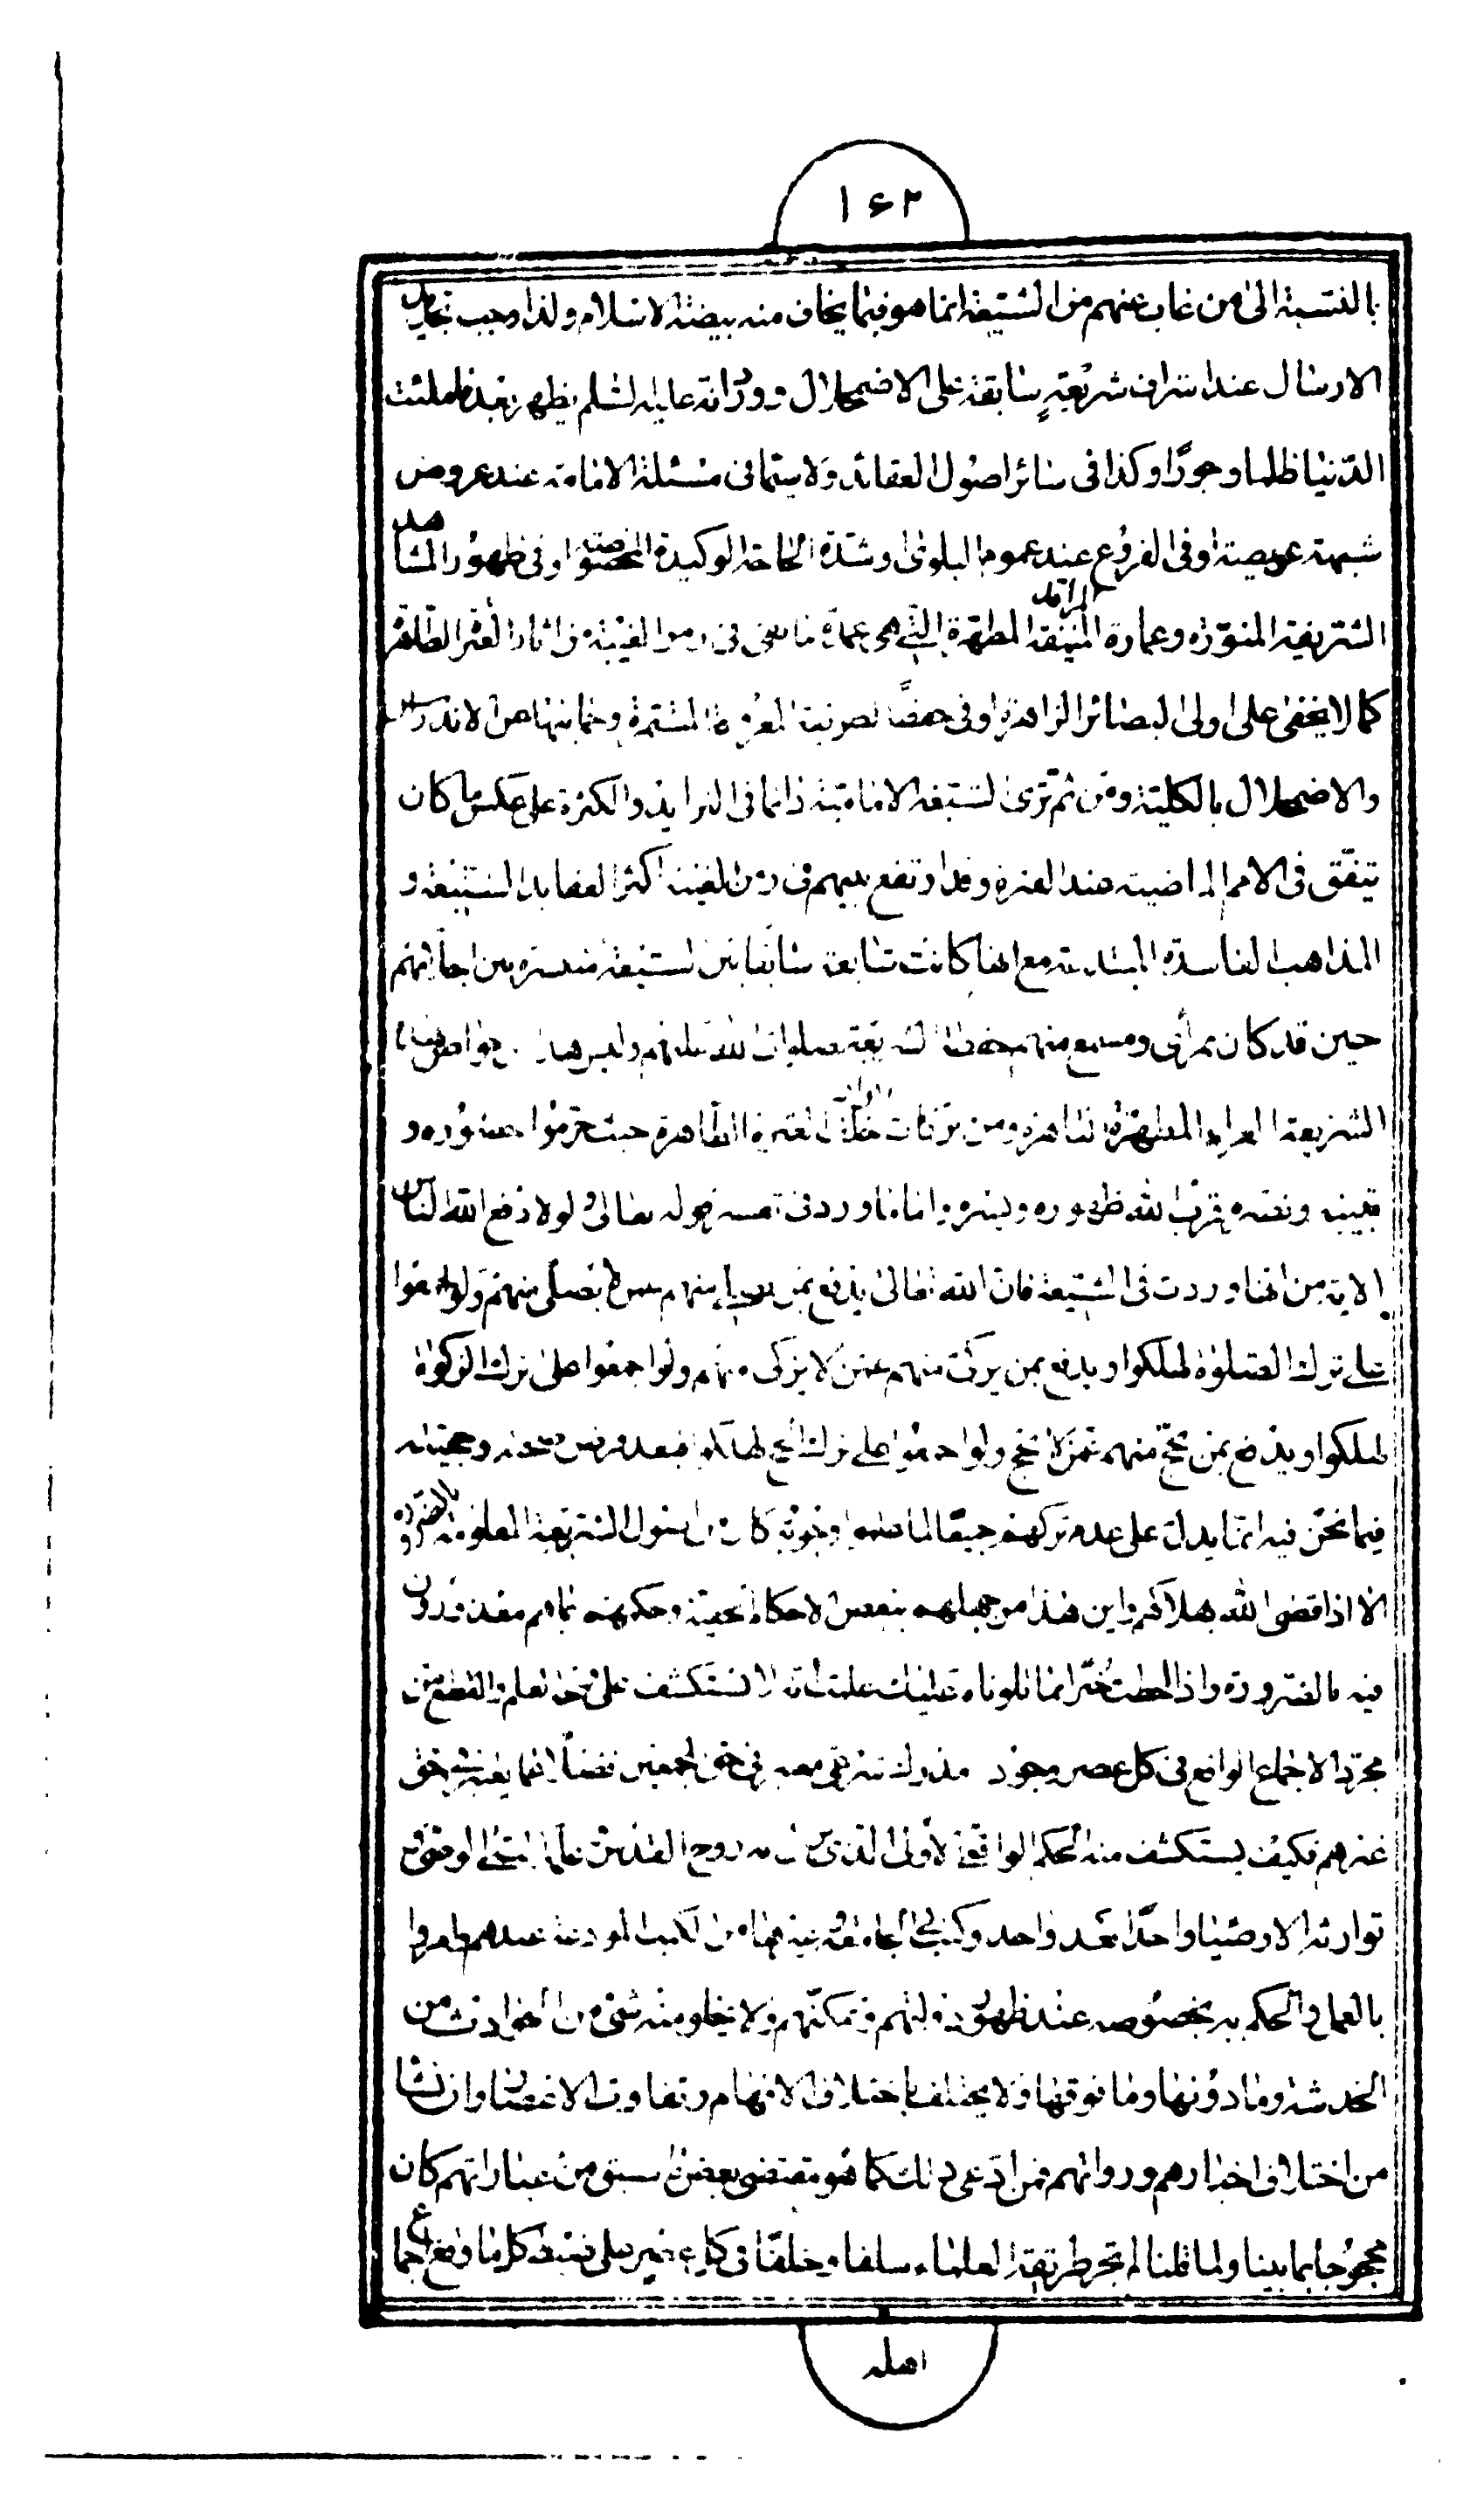 ١۶٢
بالنسبة الى من غاب عنهم من الشيعة انما هو فيما يخاف منه بيضة الاسلام ولذا وجب تجديد
الارسال عند اشراف شريعة سابقة على الاضمحلال وورد انه عليه السلم يظهر بعد ما ملئت
الدنيا ظلما وجورًا وكذا فى سائر اصول العقائد ولا سيما فى مسئلة الامامة عند عروض
شبهة عويصة او فى الفروع عند عموم البلوى وشدة الحاجة الوكيدة المخصوصة او فى ظهور المشاهد
الشريفة المنورة وعمارة المراقد المنيفة المطهرة التى هى عمدة ما بقى فى زمن الغيبة من اثار العترة الطاهرة
كما لا يخفى على اولى البصائر الزاهرة او فى حفظ المستمرة وحمايتها عن الاندراس
والاضمحلال بالكلية ومن ثم ترى الشيعة الامامية دائما فى التزايد والكثرة على عكس ما كان
يتفق فى الامم الماضية عند الفترة وقد ارتفع بينهم فى زمن الغيبة اكثر العقايد الشنيعة و
المذاهب الفاسدة المبتدعة مع انها كانت شايعة سابقا بين الشيعة منتشرة بين اجلائهم
حين قد كان بمرأى ومسمع منهم الشريعة صلوات الله عليهم وليس هذا من خواص
الشريعة الغراء المطهرة الباهرة ومن بركات العترة الطاهرة حيث حرموا حضوره و
بغيبته ونفسه قرب الله ظهوره ويسره واما ما ورد فى تفسير قوله تعالى ولولا دفع الله الناس
الاية من انها وردت فى الشيعة فان الله تعالى يدفع بمن يصلى منهم عمن لا يصلى منهم ولو اجمعوا
على ترك الصلوة لهلكوا ويدفع بمن يزكى منهم عمن لا يزكى منهم ولو اجمعوا على ترك الزكوة
لهلكوا ويدفع بمن يحج منهم عمن لا يحج ولو اجمعوا على ترك الحج لهلكوا فبعد فرض صحته وحجيته
فيما نحن فيه انما يدل على عدم تركهم جميعًا لما علموا وجوبه كان من اصول الشريعة المعلومة بالضرورة
الا اذا قضى الله بهلاكهم واين هذا من جهلهم ببعض الاحكام الخفية وحكمهم بما هم معذورون
فيه بالضرورة واذا احطت خبرًا بما تلوناه عليك علمت انه لا يستكشف على نحو العلم والقطع من
مجرد الاجماع الواقع فى كل عصر وجود مدرك شرعى معتبر فى حق المجمعين فضلًا عما يعتبر بحق
غيرهم فكيف يستكشف منه الحكم الواقعى الاولى الذى نزل به روح القدس على النبى الوحى و
توارثه الاوصياء واحدًا بعد واحد وكتب فى الجامعة وغيرها من الكتب المودعة عندهم وامروا
بالعمل والحكم به بخصوصه عند ظهور دولتهم وتمكنهم ولا يخلو منه شئ من الحوادث من
الخدشة وما دونها وما فوقها ولا يختلف باختلاف الافهام وتفاوت الاعصار وان نشا
من اختلاف اخبارهم ورواتهم فمن ادعى ذلك كما هو مقتضى بعض ما سبق من عباراتهم كان
محجوجا بما بينا ولما قلنا لم تجر طريقة العلماء سلفا وخلفًا فى كل عصر على ضبط كل ما وقع اجماع
اهله